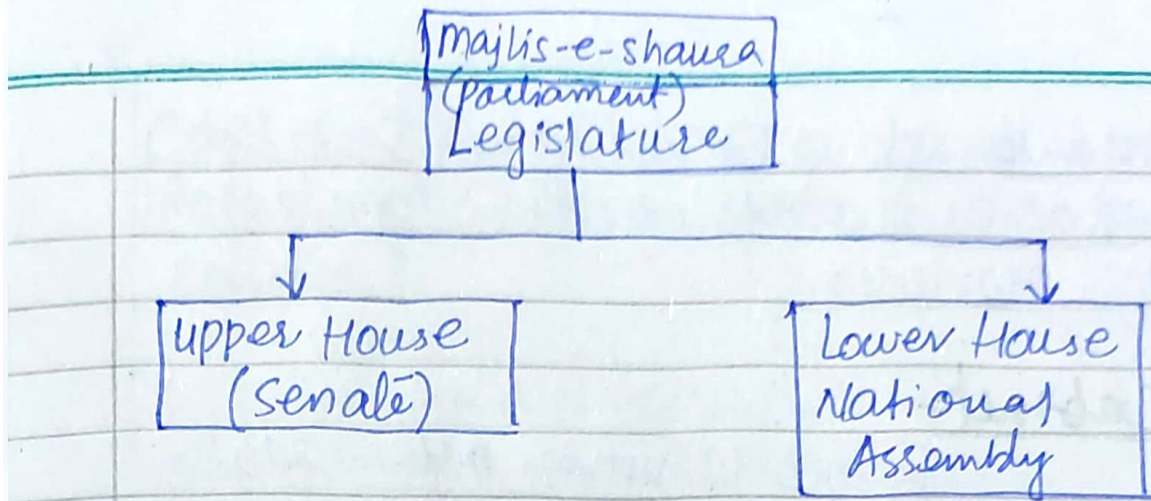 Majlis-e-shaura
(Parliament)
Legislature
upper House
(Senate)
Lower House
National
Assembly